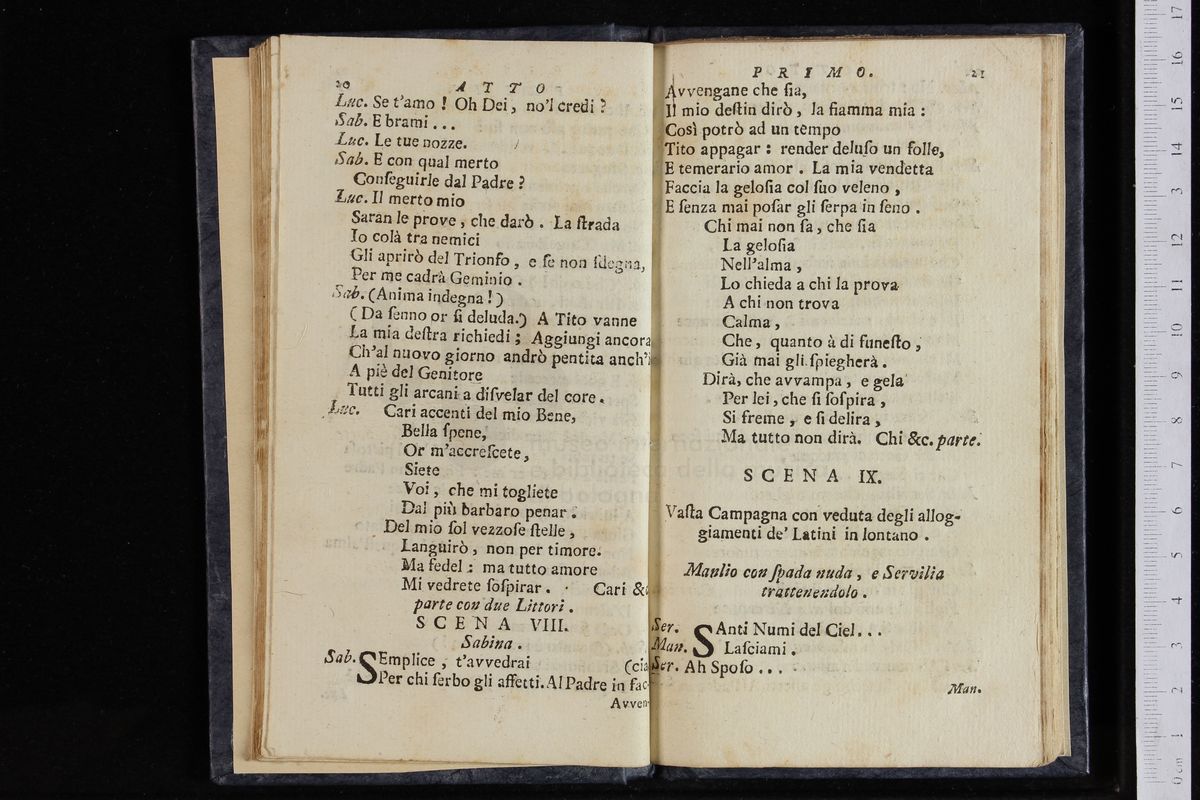 20 ATTO
Luc. Se t'amo ! Oh Dei, no'l credi ?
Sab. E brami . . .
Luc. Le tue nozze.
Sab. E con qual merto
Conſeguirle dal Padre ?
Luc. Il merto mio
Saran le prove, che darò . La ſtrada
Io colà tra nemici
Gli aprirò del Trionfo , e ſe non ſdegna,
Per me cadrà Geminio .
Sab. (Anima indegna ! )
( Da ſenno or ſi deluda.) A Tito vanne
La mia deſtra richiedi ; Aggiungi ancora
Ch'al nuovo giorno andrò pentita anch'i
A piè del Genitore
Tutti gli arcani a diſvelar del core .
Luc. Cari accenti del mio Bene,
Bella ſpene,
Or m'accreſcete,
Siete
Voi , che mi togliete
Dal più barbaro penar :
Del mio ſol vezzoſe ſtelle ,
Languirò , non per timore.
Ma fedel : ma tutto amore
Mi vedrete ſoſpirar . Cari &c
parte con due Littori .
SCENA VIII.
Sabina .
Sab. SEmplice , t'avvedrai (cia
Per chi ſerbo gli affetti. Al Padre in fac-
Avven-
PRIMO. 21
Avvengane che ſia,
Il mio deſtin dirò , la fiamma mia :
Così potrò ad un tempo
Tito appagar : render deluſo un folle,
E temerario amor . La mia vendetta
Faccia la geloſia col ſuo veleno ,
E ſenza mai poſar gli ſerpa in ſeno .
Chi mai non ſa , che ſia
La geloſia
Nell'alma ,
Lo chieda a chi la prova
A chi non trova
Calma ,
Che , quanto à di funeſto ,
Già mai gli ſpiegherà .
Dirà, che avvampa , e gela
Per lei , che ſi ſoſpira ,
Si freme , e ſi delira ,
Ma tutto non dirà. Chi &c. parte.
SCENA IX.
Vaſta Campagna con veduta degli allog-
giamenti de' Latini in lontano .
Manlio con ſpada nuda , e Servilia
trattenendolo .
Ser. SAnti Numi del Ciel. . .
Man. Laſciami .
Ser. Ah Spoſo . . .
Man.